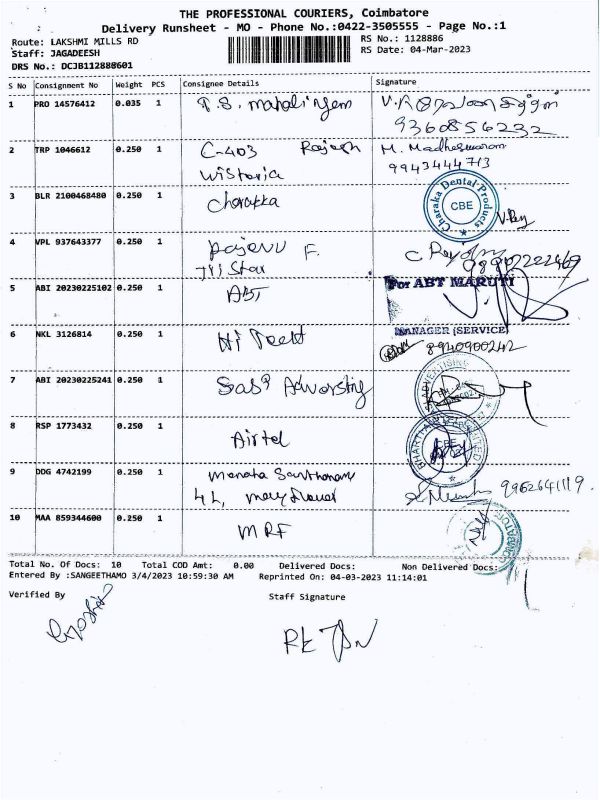 THE PROFESSIONAL COURIERS, Coimbatore
Delivery Runsheet - MO - Phone No.:0422-3505555 - Page No.:1
Route: LAKSHMI MILLS RD
RS No.: 1128886
Staff: JAGADEESH
RS Date: 04-Mar-2023
DRS No.: DCJB112888601
S No Consignment No Weight PCS Consignee Details Signature
1 PRO 14576412 0.035 1
9360856232
2 TRP 1046612 0.250 1 C-403 Rajesh M. Madheswaran
Wistoria 9943444713
3 BLR 2100468480 0.250 1 Charakka Charaka Dental Products CBE
4 VPL 937643377 0.250 1 F.
Star
For ABT MARUTI
5 ABI 20230225102 0.250 1 ABT
MANAGER (SERVICE)
6 NKL 3126814 0.250 1 8940900242
7 ABI 20230225241 0.250 1
8 RSP 1773432 0.250 1 Airtel CBE
9 DDG 4742199 0.250 1
4 L, 9962641119.
10 MAA 859344600 0.250 1 MRF
Total No. Of Docs: 10 Total COD Amt: 0.00 Delivered Docs: Non Delivered Docs:
Entered By :SANGEETHAMO 3/4/2023 10:59:30 AM Reprinted On: 04-03-2023 11:14:01
Verified By Staff Signature